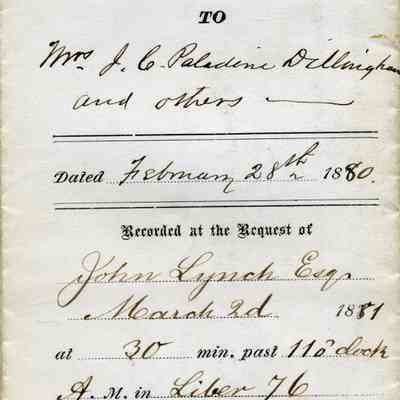 TO
Mrs J. C. Paladini Dillingham
and others
Dated February 28th 1880.
Recorded at the Request of
John Lynch Esq.
March 2d 1881
at 30 min. past 11 o'clock
A. M. in Liber 76